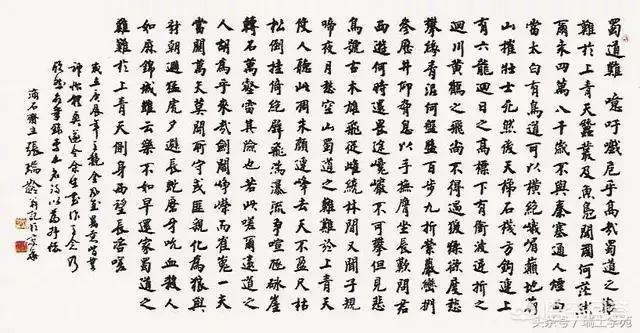 蜀道難 噫吁戲危乎高哉蜀道之難
難於上青天蠶叢及魚鳧開國何茫然
爾來四萬八千歲不與秦塞通人煙西
當太白有鳥道可以橫絕峨嵋巔地崩
山摧壯士死然後天梯石棧方鉤連上
有六龍迴日之高標下有衝波逆折之
迴川黃鶴之飛尚不得過猨猱欲度愁
攀緣青泥何盤盤百步九折縈巖巒捫
參歷井仰脅息以手撫膺坐長歎問君
西遊何時還畏途巉巖不可攀但見悲
鳥號古木雄飛從雌繞林間又聞子規
啼夜月愁空山蜀道之難難於上青天
使人聽此凋朱顏連峰去天不盈尺枯
松倒挂倚絕壁飛湍瀑流爭喧豗砯崖
轉石萬壑雷其險也若此嗟爾遠道之
人胡為乎來哉劍閣崢嶸而崔嵬一夫
當關萬夫莫開所守或匪親化為狼與
豺朝避猛虎夕避長蛇磨牙吮血殺人
如麻錦城雖云樂不如早還家蜀道之
難難於上青天側身西望長咨嗟
庚辰年
石齋主張瑞齡
头条号